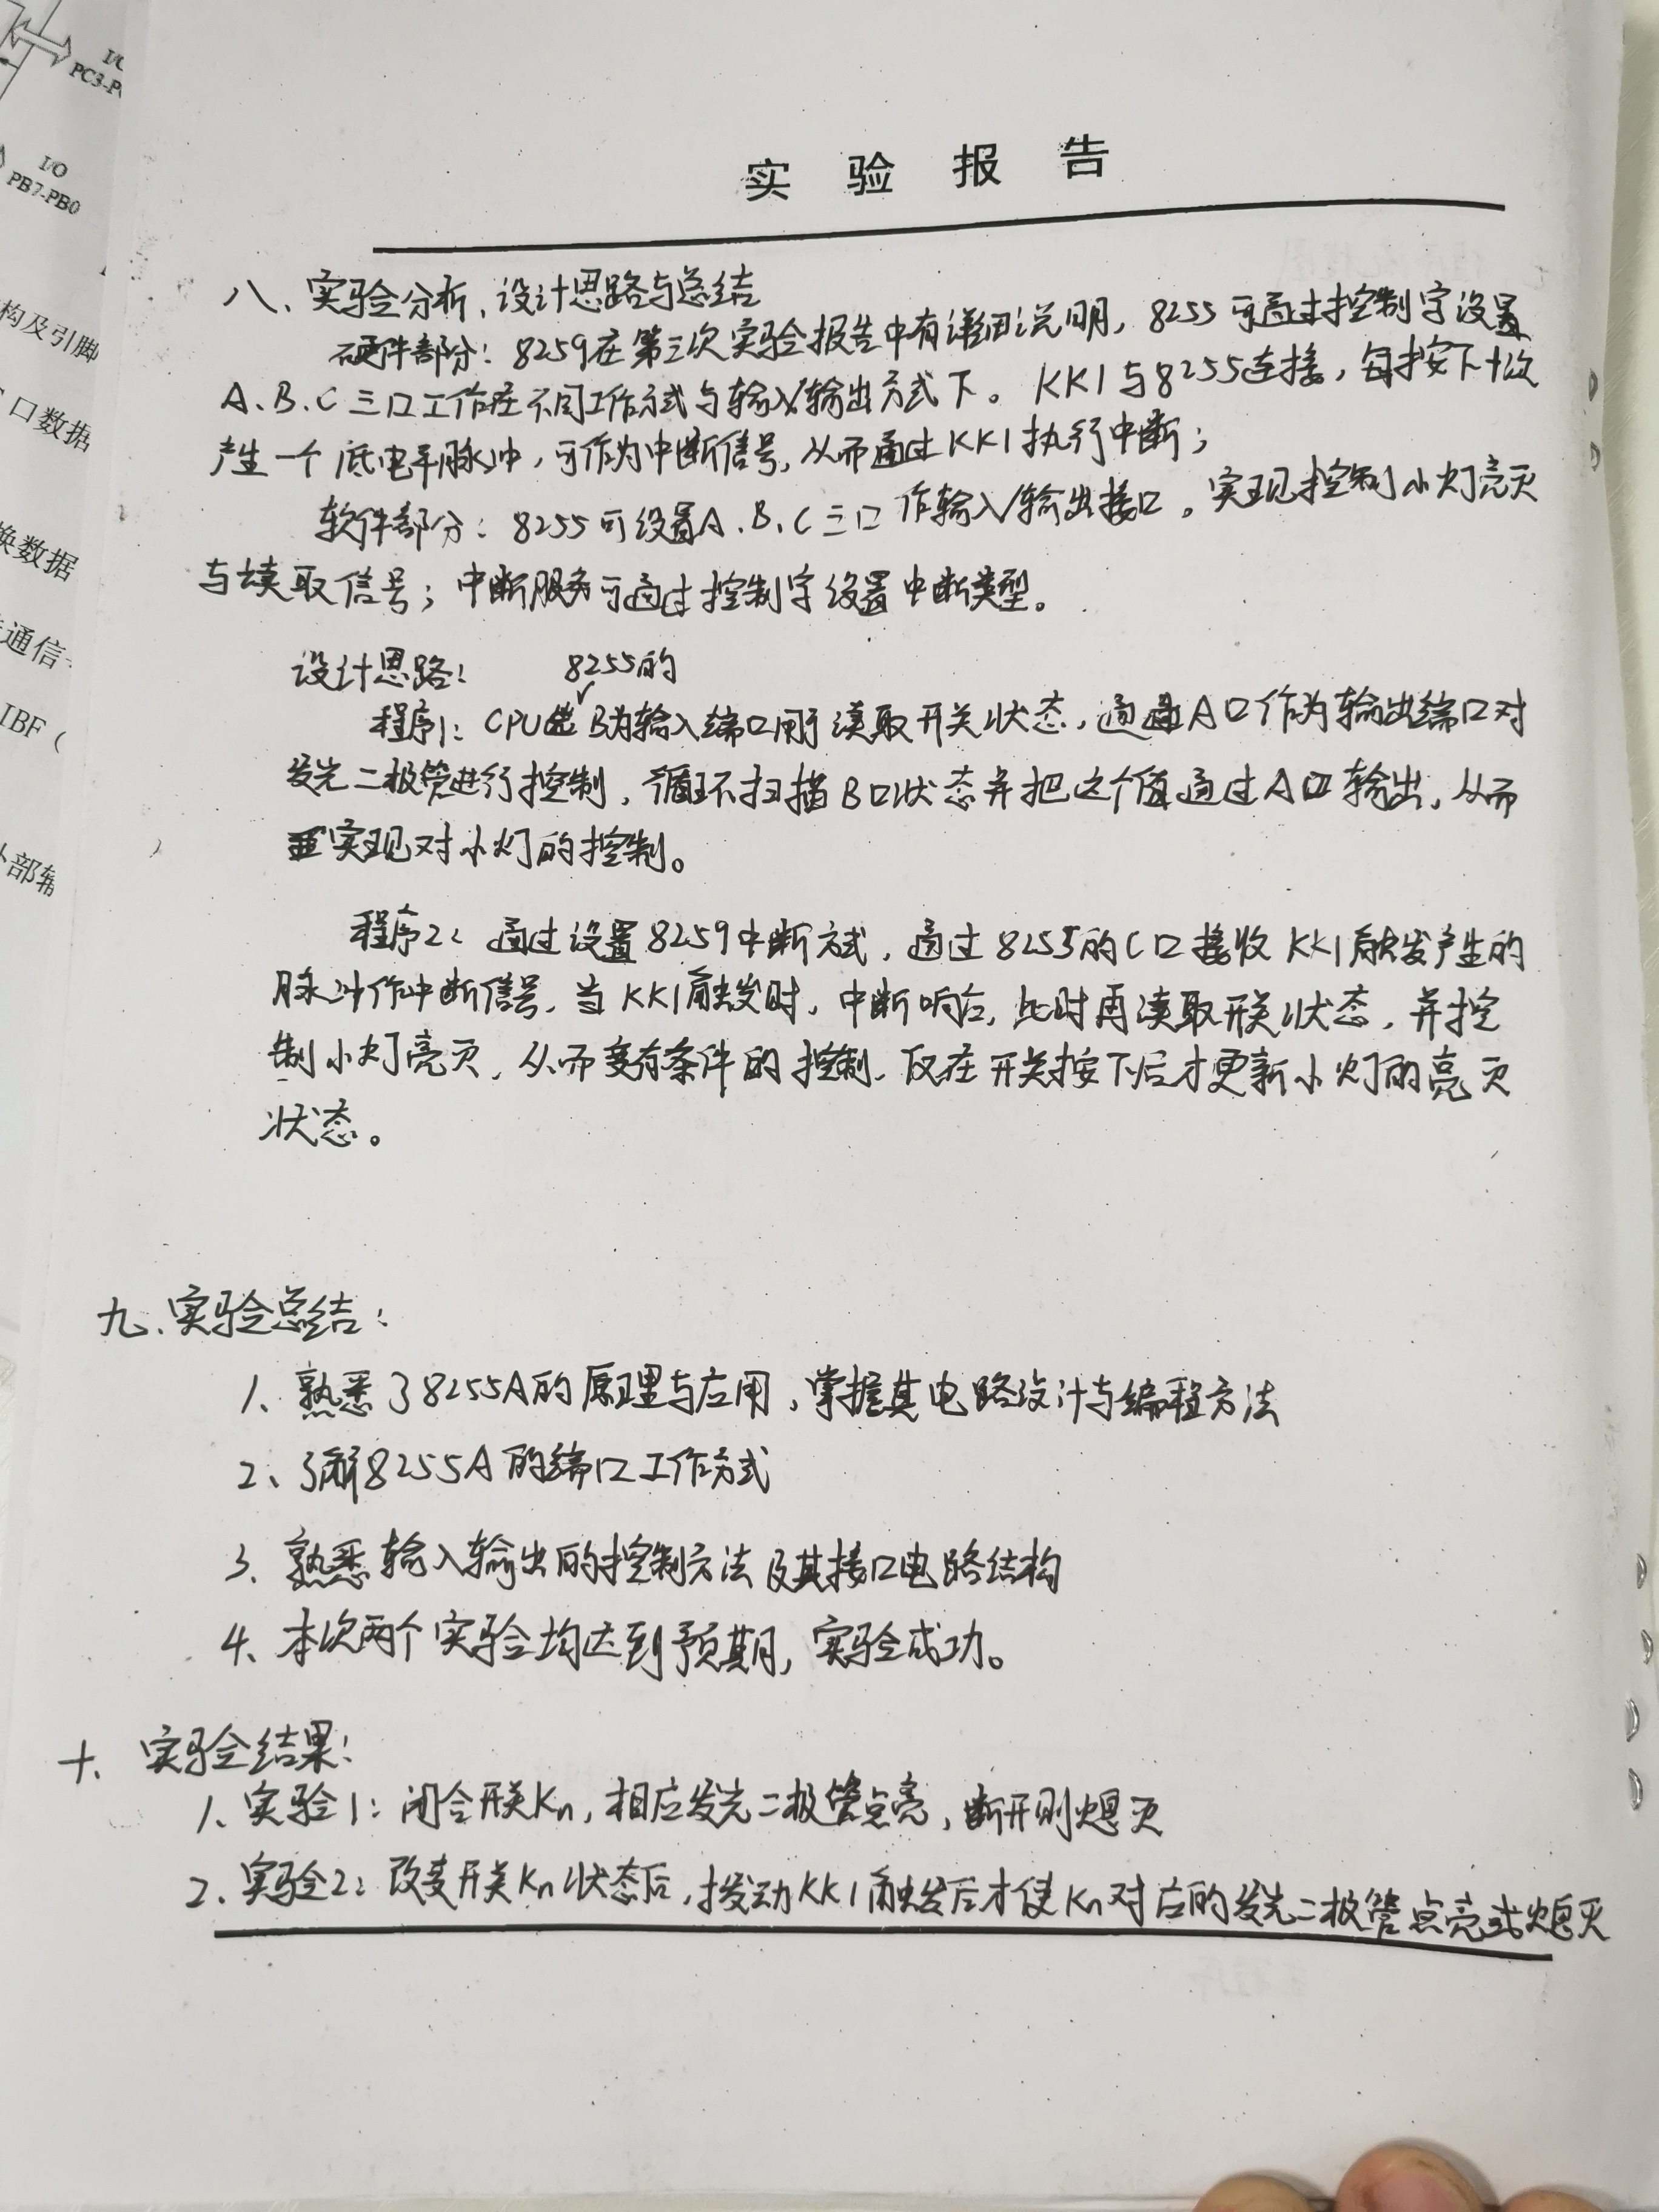 I/O
PC3-P
I/O
PB7-PB0
构及引脚
口数据
换数据
通信
IBF（
部辅
实验报告
八、实验分析、设计思路与总结
硬件部分：8259在第三次实验报告中有详细说明，8255可通过控制字设置
A、B、C三口工作在不同工作方式与输入/输出方式下。KK1与8255连接，每按下一次
产生一个低电平脉冲，可作为中断信号，从而通过KK1执行中断；
软件部分：8255可设置A、B、C三口作输入/输出接口，实现控制小灯亮灭
与读取信号；中断服务可通过控制字设置中断类型。
设计思路：
8255的
程序1：CPU B为输入端口用于读取开关状态，通过A口作为输出端口对
发光二极管进行控制，循环扫描B口状态并把这个值通过A口输出，从而
实现对小灯的控制。
程序2：通过设置8259中断方式，通过8255的C口接收KK1触发产生的
脉冲作中断信号，当KK1触发时，中断响应，此时再读取开关状态，并控
制小灯亮灭，从而变有条件的控制，仅在开关按下后才更新小灯的亮灭
状态。
九、实验总结：
1、熟悉了8255A的原理与应用，掌握其电路设计与编程方法
2、了解8255A的端口工作方式
3、熟悉输入输出的控制方法及其接口电路结构
4、本次两个实验均达到预期，实验成功。
十、实验结果：
1、实验1：闭合开关Kn，相应发光二极管点亮，断开则熄灭
2、实验2：改变开关Kn状态后，拨动KK1触发后才使Kn对应的发光二极管点亮或熄灭